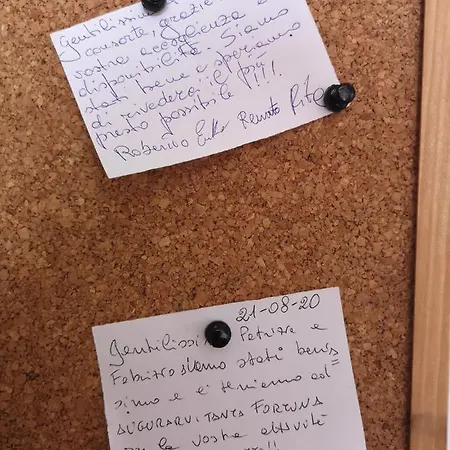 Gentilissi
consorte, grazie
vostra accoglienza e
disponibilità. Siamo
stati bene e speriamo
di rivederci il più
presto possibile !!!
Roberto Renato Rita
21-08-20
Gentilissi e
Fabrizio siamo stati benis=
simo e ci teniamo ad
AUGURARVI TANTA FORTUNA
la vostra attività
!!